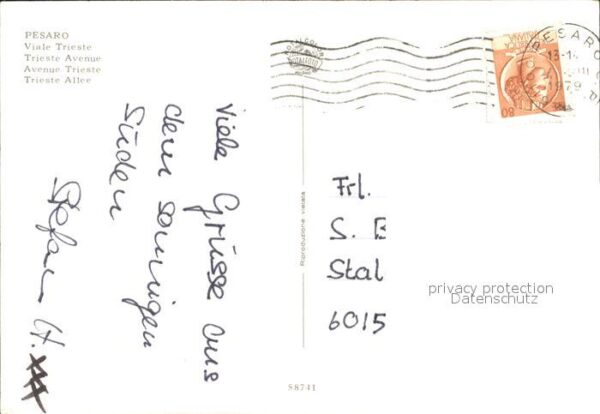 PESARO
Viale Trieste
Trieste Avenue
Avenue Trieste
Trieste Allee
Viele Grüsse aus
dem sonnigen
Süden
Stefan H. xxx
Riproduzione vietata
S8741
PESARO
13-1
1979
80
Frl.
S. E
Stal
6015
privacy protection
Datenschutz